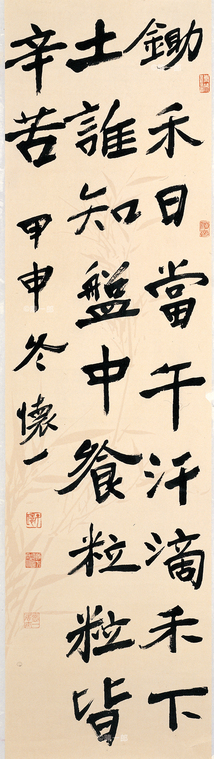 鋤禾日當午汗滴禾下
土誰知盤中飧粒粒皆
辛苦 甲申冬 懷一